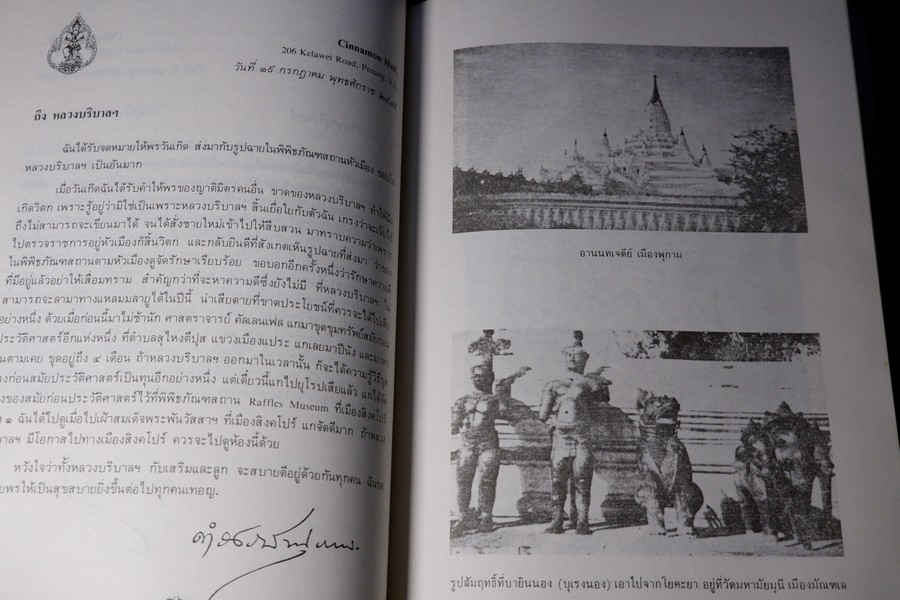 Cinnamon Hall,
206 Kelawei Road, Penang,
วันที่ ๑๕ กรกฎาคม พุทธศักราช
ถึง หลวงบริบาลฯ
ฉันได้รับจดหมายให้พรวันเกิด ส่งมากับรูปฉายในพิพิธภัณฑสถานหัวเมือง ขอบใจ
หลวงบริบาลฯ เป็นอันมาก
เมื่อวันเกิดฉันได้รับคำให้พรของญาติมิตรคนอื่น ขาดของหลวงบริบาลฯ ทำให้ฉัน
เกิดวิตก เพราะรู้อยู่ว่ามิใช่เป็นเพราะหลวงบริบาลฯ สิ้นเยื่อใยกับตัวฉัน เกรงว่าจะเจ็บไข้
ถึงไม่สามารถจะเขียนมาได้ จนได้สั่งชายใหม่เข้าไปให้สืบสวน มาทราบความว่าเพราะ
ไปตรวจราชการอยู่หัวเมืองก็สิ้นวิตก และกลับยินดีที่สังเกตเห็นรูปฉายที่ส่งมา ว่าของ
ในพิพิธภัณฑสถานตามหัวเมืองดูจัดรักษาเรียบร้อย ขอบอกอีกครั้งหนึ่งว่ารักษาความดี
ที่มีอยู่แล้วอย่าให้เสื่อมทราม สำคัญกว่าที่จะหาความดีซึ่งยังไม่มี ที่หลวงบริบาลฯ ไม่
สามารถจะลามาทางแหลมมลายูได้ในปีนี้ น่าเสียดายที่ขาดประโยชน์ที่ควรจะได้ไปเสีย
อย่างหนึ่ง ด้วยเมื่อก่อนนี้มาไม่ช้านัก ศาสตราจารย์ คัลเลนเฟล แกมาขุดขุมทรัพย์สมัยก่อน
ประวัติศาสตร์อีกแห่งหนึ่ง ที่ตำบลสุไหงตีปุส แขวงเมืองแประ แกเลยมาปีนัง และมาหา
ตามเคย ขุดอยู่ถึง ๔ เดือน ถ้าหลวงบริบาลฯ ออกมาในเวลานั้น ก็จะได้ความรู้วิธีขุด
ก่อนสมัยประวัติศาสตร์เป็นทุนอีกอย่างหนึ่ง แต่เดี๋ยวนี้แกไปยุโรปเสียแล้ว แกได้จัด
ของสมัยก่อนประวัติศาสตร์ไว้ที่พิพิธภัณฑสถาน Raffles Museum ที่เมืองสิงคโปร์
๑ ฉันได้ไปดูเมื่อไปเฝ้าสมเด็จพระพันวัสสาฯ ที่เมืองสิงคโปร์ แกจัดดีมาก ถ้าหลวง
บาลฯ มีโอกาสไปทางเมืองสิงคโปร์ ควรจะไปดูห้องนี้ด้วย
หวังใจว่าทั้งหลวงบริบาลฯ กับเสริมและลูก จะสบายดีอยู่ด้วยกันทุกคน ฉันขอ
พรให้เป็นสุขสบายยิ่งขึ้นต่อไปทุกคนเทอญ.
อานนทเจดีย์ เมืองพุกาม
รูปสัมฤทธิ์ที่บายินนอง (บุเรงนอง) เอาไปจากโยคะยา อยู่ที่วัดมหามัยมุนี เมืองมัณฑเล